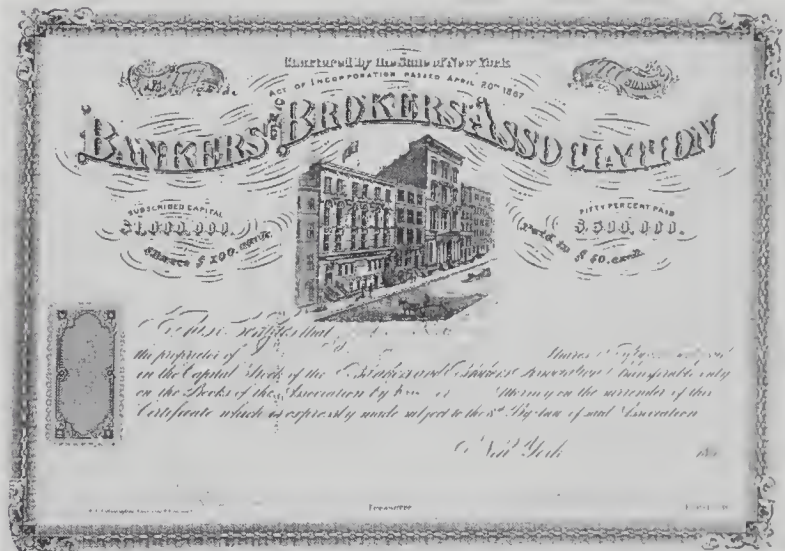 Chartered by the State of New York
ACT OF INCORPORATION PASSED APRIL 20TH 1867
BANKERS' AND BROKERS' ASSOCIATION
SUBSCRIBED CAPITAL
$1,000,000.
Shares $100. each.
FIFTY PER CENT PAID
$500,000.
Paid in $50. each.
SHARES
that
the proprietor of Shares
in the Capital Stock of the Bankers and Brokers Association transferable only
on the Books of the Association by or Attorney on the surrender of this
Certificate which is expressly made subject to the By-law of said Association
New York 18
Treasurer